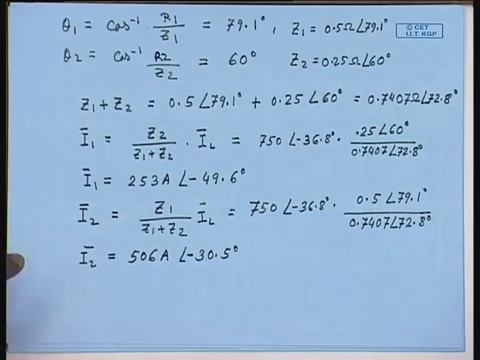 θ1 = cos⁻¹ R1/Z1 = 79.1°, Z1 = 0.5Ω∠79.1°
© CET
I.I.T. KGP
θ2 = cos⁻¹ R2/Z2 = 60° Z2 = 0.25Ω∠60°
Z1 + Z2 = 0.5∠79.1° + 0.25∠60° = 0.7407Ω∠72.8°
Ī1 = Z2/(Z1+Z2) · ĪL = 750∠-36.8° · .25∠60°/0.7407∠72.8°
Ī1 = 253A∠-49.6°
Ī2 = Z1/(Z1+Z2) ĪL = 750∠-36.8° · 0.5∠79.1°/0.7407∠72.8°
Ī2 = 506A∠-30.5°